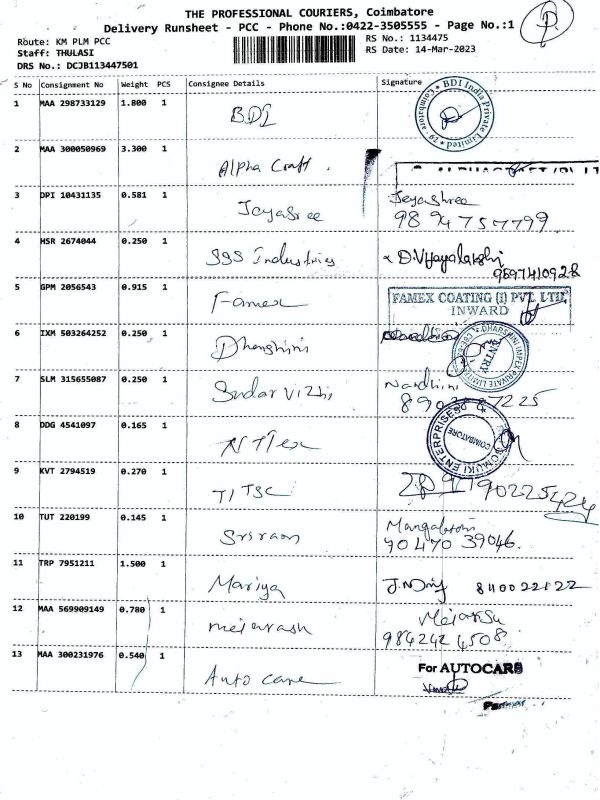 THE PROFESSIONAL COURIERS, Coimbatore
Delivery Runsheet - PCC - Phone No.:0422-3505555 - Page No.:1
Route: KM PLM PCC
RS No.: 1134475
Staff: THULASI
RS Date: 14-Mar-2023
DRS No.: DCJB113447501
S No Consignment No Weight PCS Consignee Details Signature
1 MAA 298733129 1.800 1 BDI BDI India Private Limited Coimbatore
2 MAA 300050969 3.300 1 Alpha Craft.
3 DPI 10431135 0.581 1 Jeyasree Jeyashree
98 94 757799
4 HSR 2674044 0.250 1 SGS Industries D.Vijayalakshi
9597410928
5 GPM 2056543 0.915 1 Famex FAMEX COATING (I) PVT. LTD.
INWARD
6 IXM 503264252 0.250 1 Dharshini DHARSHINI IMPEX PRIVATE LIMITED ENTRY
7 SLM 315655087 0.250 1 Sudar Vizhi Nandhini
8 DDG 4541097 0.165 1 ENTERPRISES COIMBATORE
9 KVT 2794519 0.270 1
10 TUT 220199 0.145 1 Sriram
90470 39046.
11 TRP 7951211 1.500 1 Mariya
12 MAA 569909149 0.780 1
984242 4508
13 MAA 300231976 0.540 1 Auto care For AUTOCARS